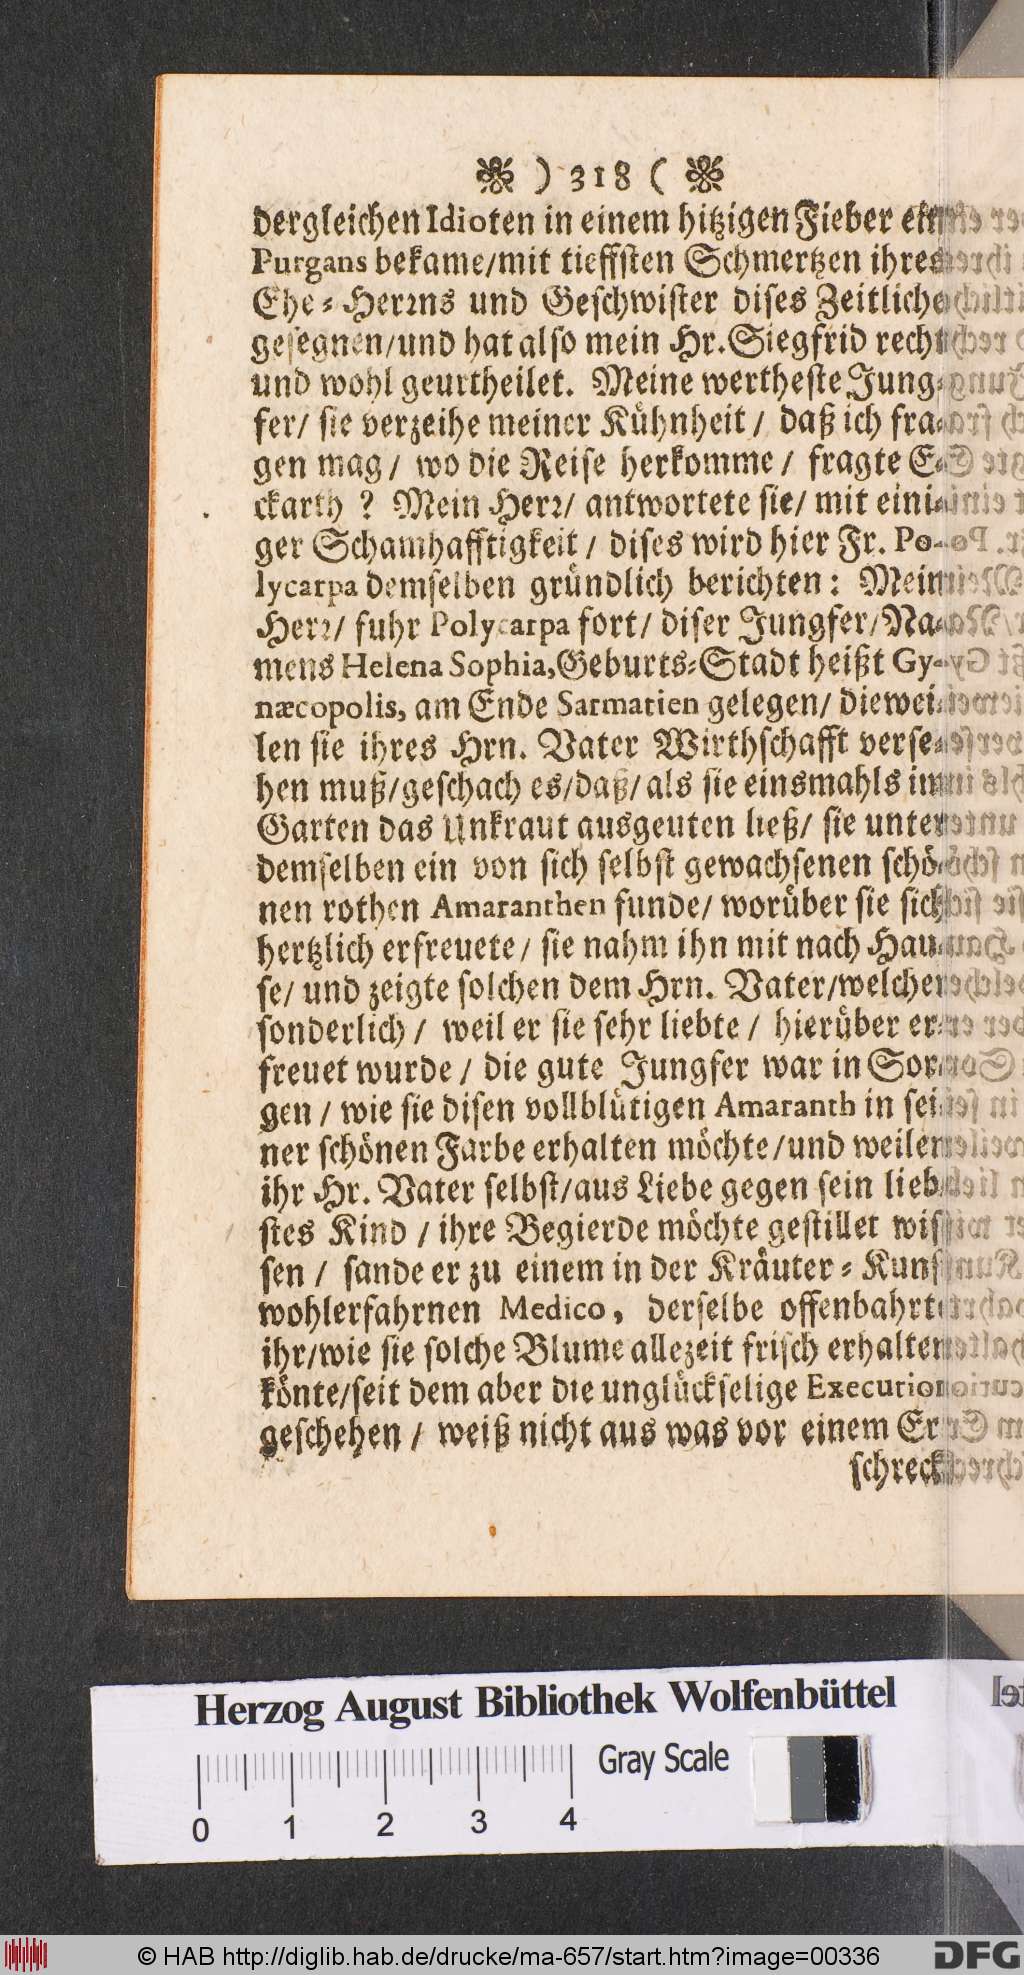 ) 318 (
dergleichen Idioten in einem hitzigen Fieber ein
Purgans bekame/mit tieffsten Schmertzen ihres
Ehe-Herꝛns und Geschwister dises Zeitliche
gesegnen/und hat also mein Hr. Siegfrid recht
und wohl geurtheilet. Meine wertheste Jung-
fer/ sie verzeihe meiner Kühnheit / daß ich fra-
gen mag / wo die Reise herkomme / fragte E-
ckarth ? Mein Herꝛ/ antwortete sie/ mit eini-
ger Schamhafftigkeit / dises wird hier Fr. Po-
lycarpa demselben gründlich berichten: Mein
Herꝛ/ fuhr Polycarpa fort/ diser Jungfer/Na-
mens Helena Sophia, Geburts-Stadt heißt Gy-
næcopolis, am Ende Sarmatien gelegen/ diewei-
len sie ihres Hrn. Vater Wirthschafft verse-
hen muß/geschach es/daß/ als sie einsmahls im
Garten das Unkraut ausgeuten ließ/ sie unter
demselben ein von sich selbst gewachsenen schö-
nen rothen Amaranthen funde/ worüber sie sich
hertzlich erfreuete/ sie nahm ihn mit nach Hau-
se/ und zeigte solchen dem Hrn. Vater/welcher
sonderlich / weil er sie sehr liebte / hierüber er-
freuet wurde / die gute Jungfer war in Sor-
gen / wie sie disen vollblütigen Amaranth in sei-
ner schönen Farbe erhalten möchte/und weilen
ihr Hr. Vater selbst/aus Liebe gegen sein lieb-
stes Kind / ihre Begierde möchte gestillet wis-
sen / sande er zu einem in der Kräuter-Kunst
wohlerfahrnen Medico, derselbe offenbahrte
ihr/wie sie solche Blume allezeit frisch erhalten
könte/seit dem aber die unglückselige Execution
geschehen / weiß nicht aus was vor einem Er-
schreck-
Herzog August Bibliothek Wolfenbüttel
Gray Scale
0 1 2 3 4
© HAB http://diglib.hab.de/drucke/ma-657/start.htm?image=00336
DFG